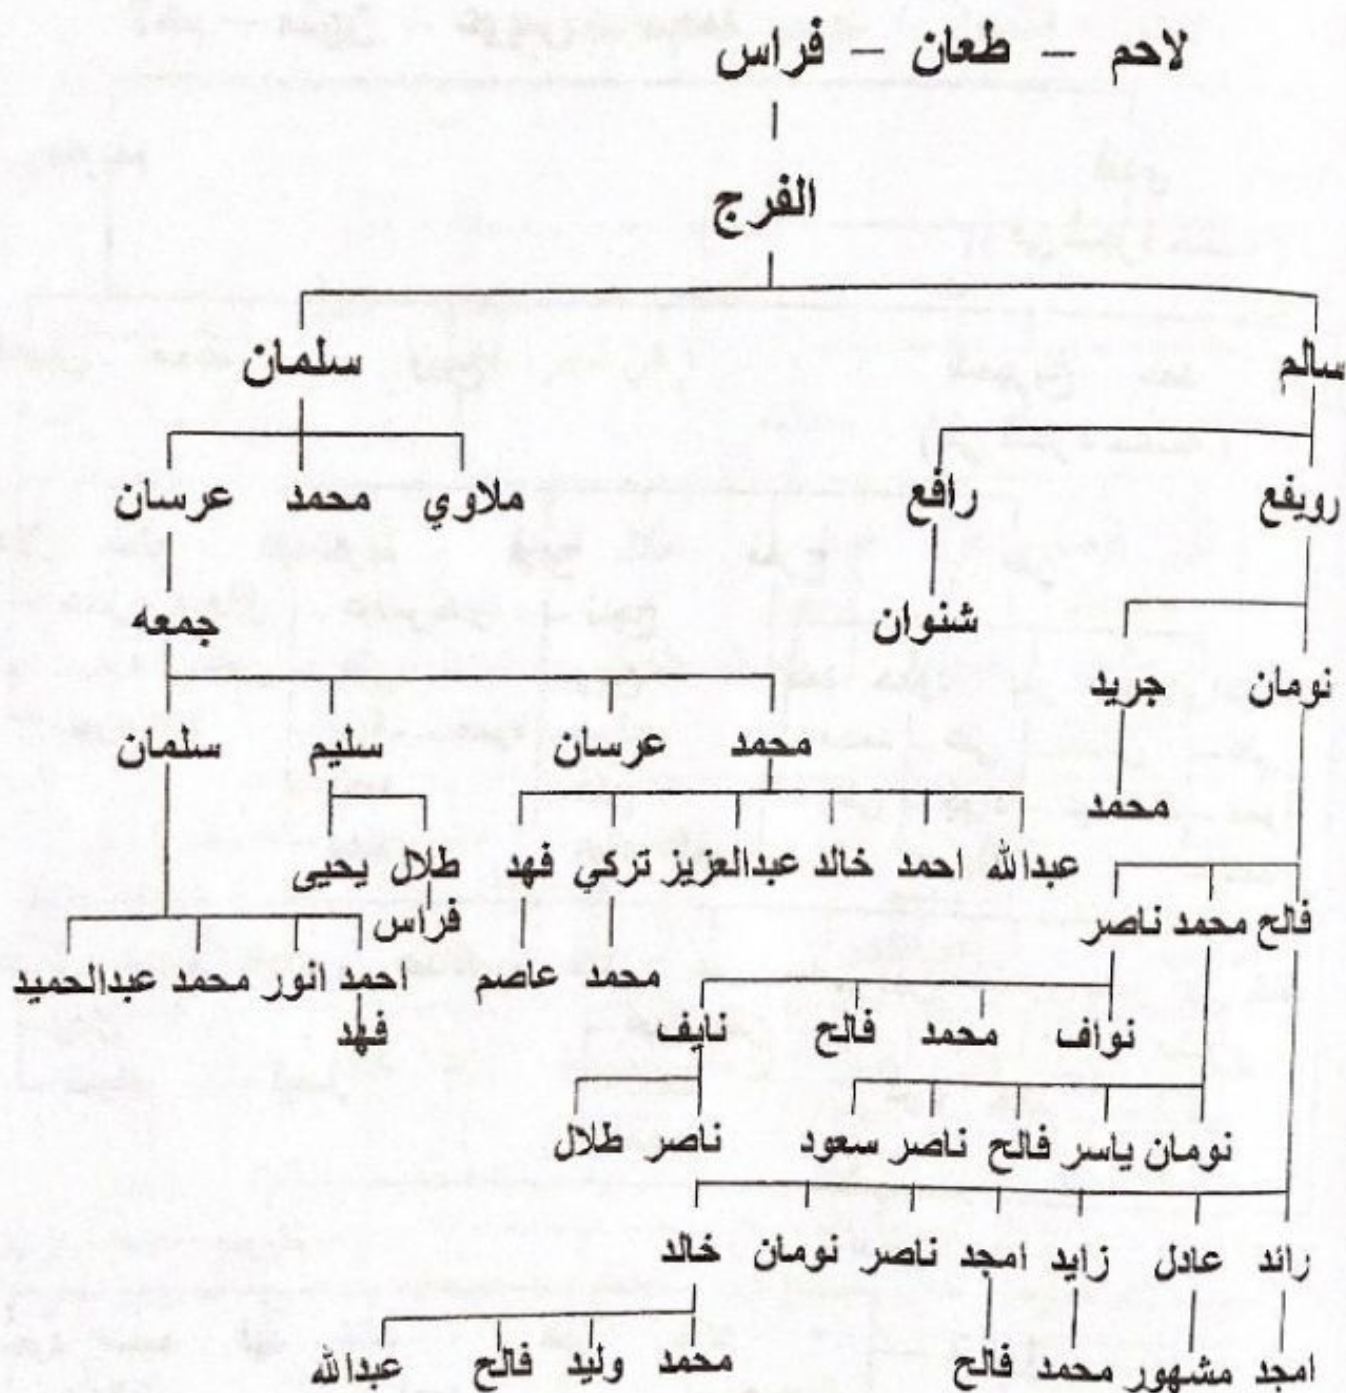 لاحم – طعان – فراس
الفرج
سالم سلمان
رويفع رافع ملاوي محمد عرسان
شنوان جمعه
نومان جريد
محمد عرسان سليم سلمان
محمد
عبدالله احمد خالد عبدالعزيز تركي فهد طلال يحيى
فالح محمد ناصر فراس
محمد عاصم احمد انور محمد عبدالحميد
نواف محمد فالح نايف فهد
نومان ياسر فالح ناصر سعود ناصر طلال
رائد عادل زايد امجد ناصر نومان خالد
امجد مشهور محمد فالح محمد وليد فالح عبدالله